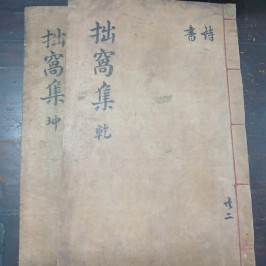 拙窩集 乾
詩書
共二
拙窩集 坤